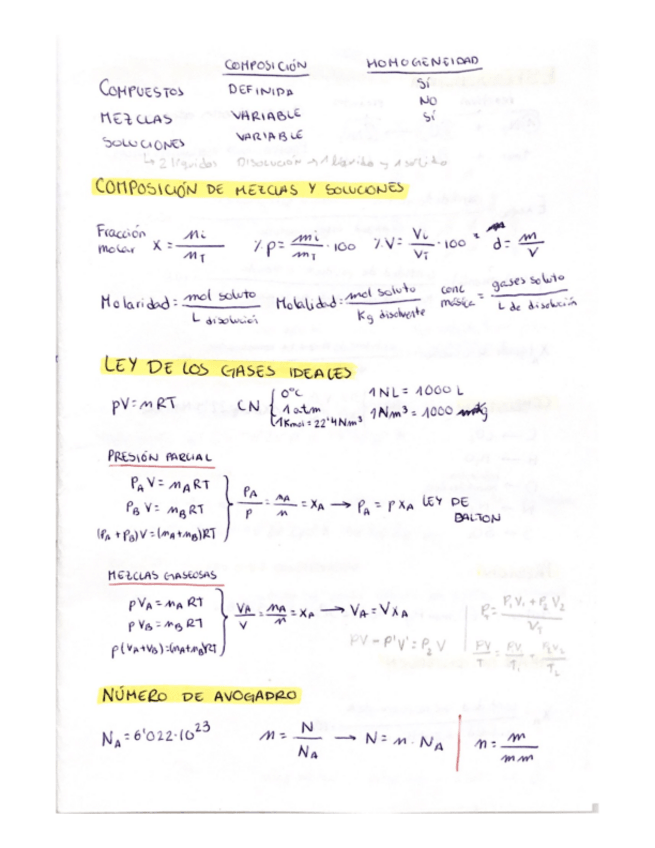 COMPOSICIÓN HOMOGENEIDAD
COMPUESTOS DEFINIDA SÍ
MEZCLAS VARIABLE NO
SOLUCIONES VARIABLE SÍ
↳ 2 líquidos Disolución → 1 líquido y 1 sólido
COMPOSICIÓN DE MEZCLAS Y SOLUCIONES
Fracción molar X = ni / nT % p = mi / mT · 100 % V = Vi / VT · 100 d = m / V
Molaridad = mol soluto / L disolución Molalidad = mol soluto / Kg disolvente conc másica = gases soluto / L de disolución
LEY DE LOS GASES IDEALES
pV = nRT CN { 0ºC 1 atm 1Kmol = 22'4 Nm³ 1NL = 1000 L
1Nm³ = 1000
PRESIÓN PARCIAL
PA V = nA RT
PB V = nB RT
(PA + PB)V = (nA + nB)RT } PA / P = nA / n = XA → PA = P XA LEY DE DALTON
MEZCLAS GASEOSAS
pVA = nA RT
pVB = nB RT
p(VA + VB) = (nA + nB)RT } VA / V = nA / n = XA → VA = V XA
PV = P'V' = P2 V
P1V1 + P2V2 / VT
PV / T = PV1 / T1 + P2V2 / T2
NÚMERO DE AVOGADRO
NA = 6'022·10²³ n = N / NA → N = n · NA | n = m / mm